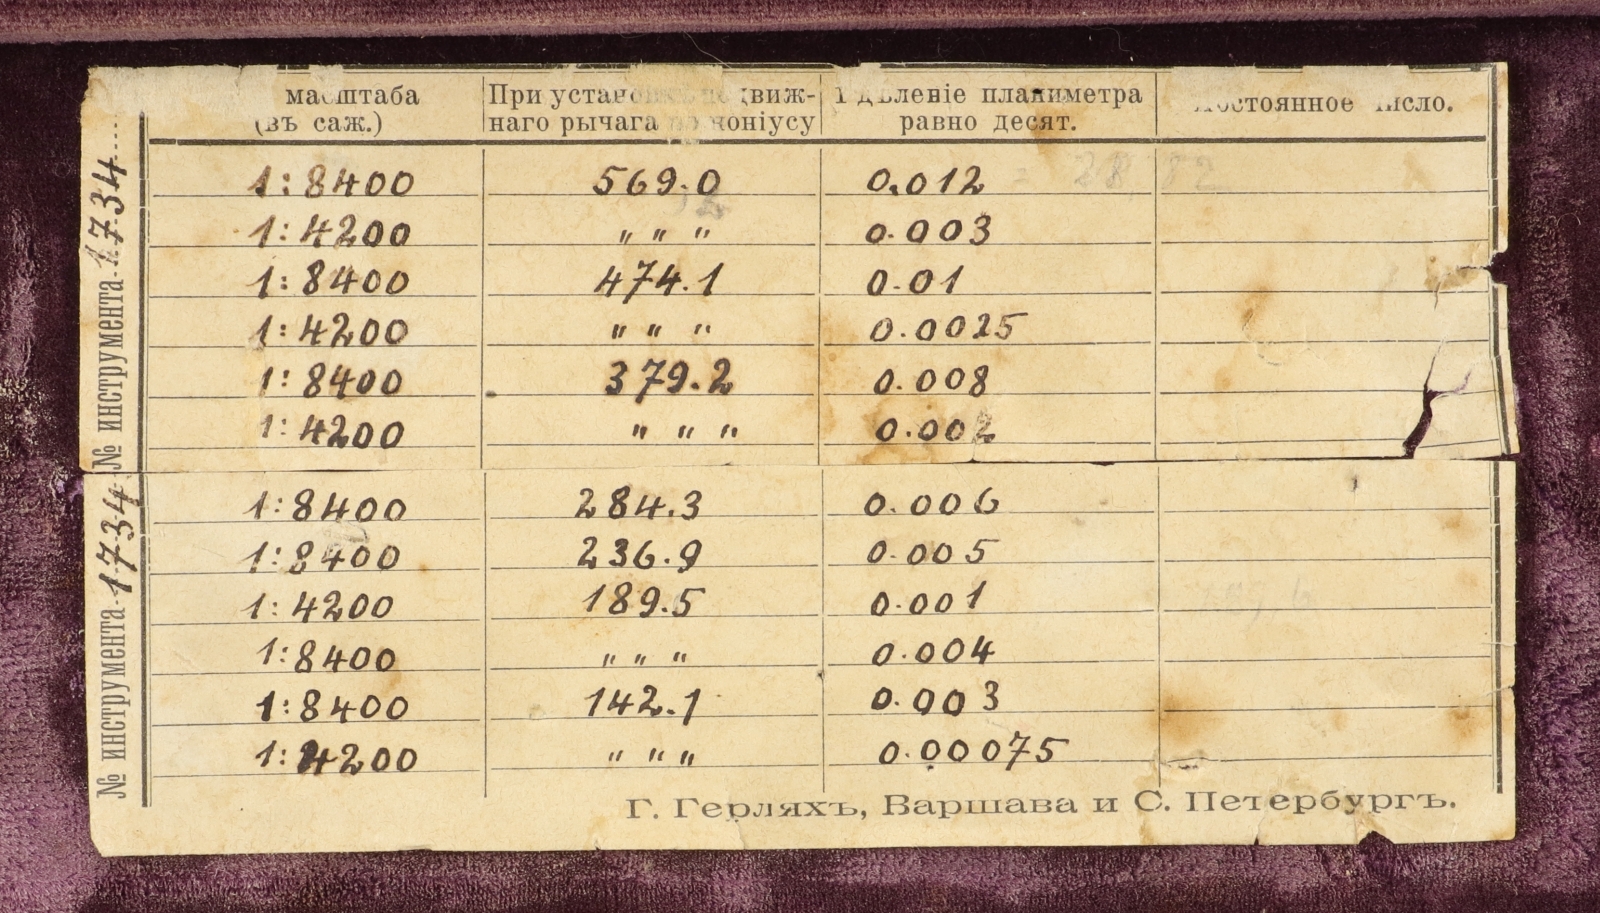 масштаба При движ- дѣленіе планиметра постоянное число.
(въ саж.) наго рычага пононіусу равно десят.
1:8400 569.0 0.012
1:4200 " " " 0.003
1:8400 474.1 0.01
1:4200 " " " 0.0025
1:8400 379.2 0.008
1:4200 " " " 0.002
1:8400 284.3 0.006
1:8400 236.9 0.005
1:4200 189.5 0.001
1:8400 " " " 0.004
1:8400 142.1 0.003
1:4200 " " " 0.00075
Г. Герляхъ, Варшава и С. Петербургъ.
№ инструмента 1734
№ инструмента 1734